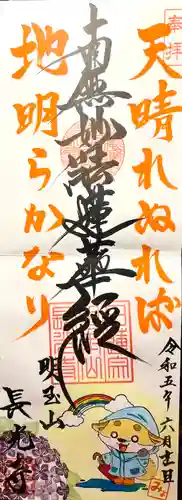 奉拝
天晴れぬれば
地明らかなり
南無妙法蓮華経
令和五年六月十一日
明玉山
長光寺